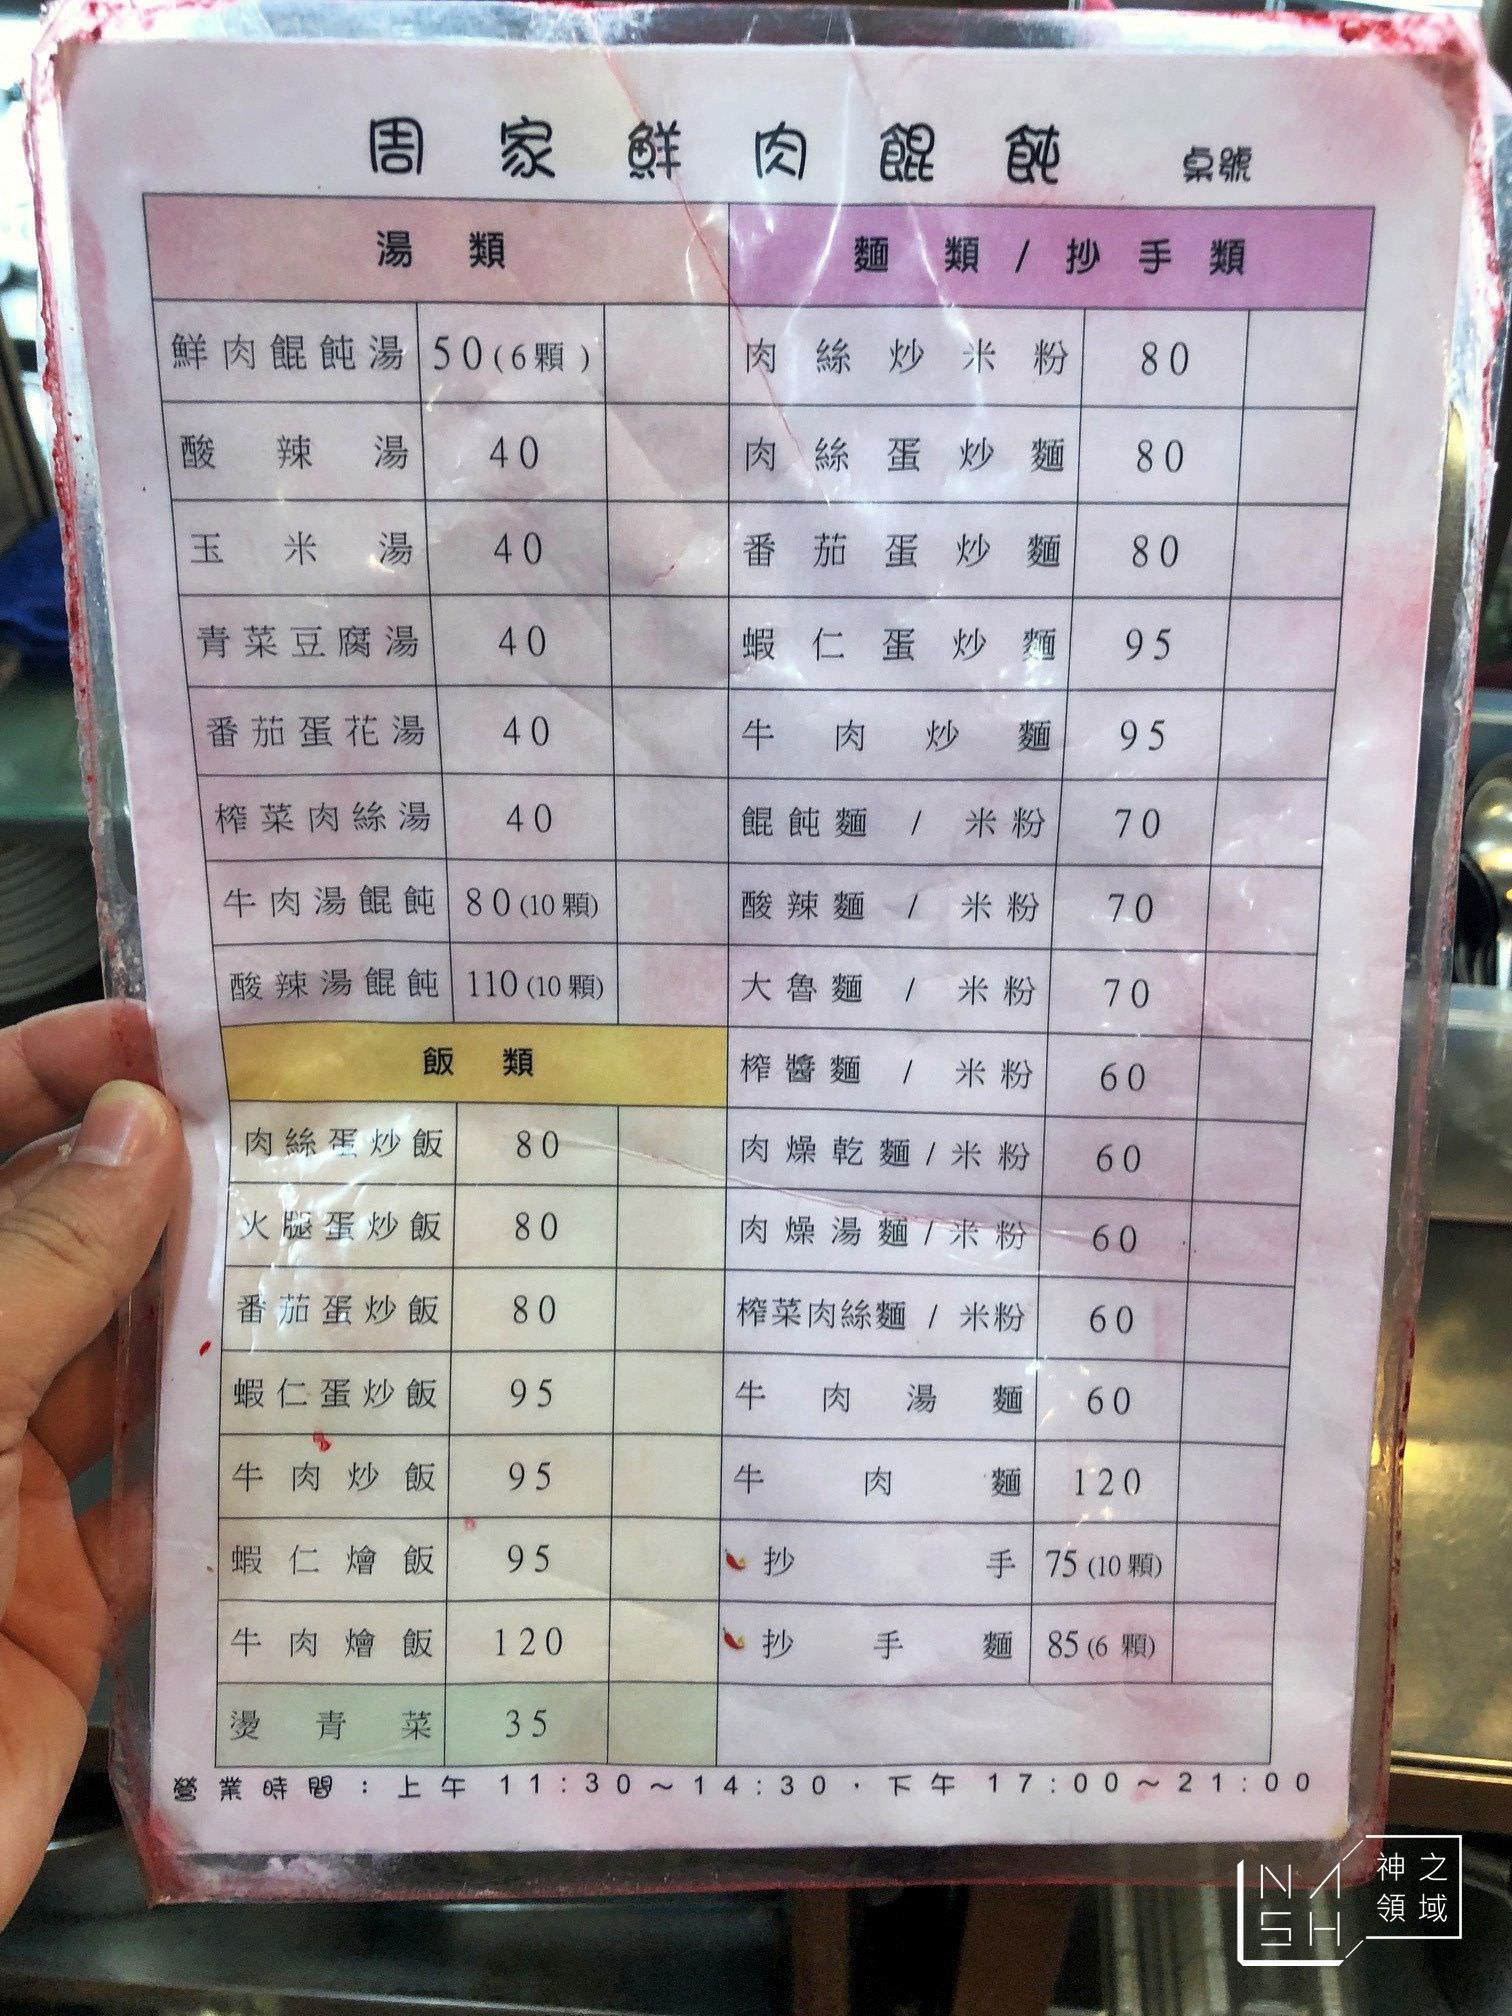 周家鮮肉餛飩 桌號
湯類
鮮肉餛飩湯 50(6顆)
酸辣湯 40
玉米湯 40
青菜豆腐湯 40
番茄蛋花湯 40
榨菜肉絲湯 40
牛肉湯餛飩 80(10顆)
酸辣湯餛飩 110(10顆)
飯類
肉絲蛋炒飯 80
火腿蛋炒飯 80
番茄蛋炒飯 80
蝦仁蛋炒飯 95
牛肉炒飯 95
蝦仁燴飯 95
牛肉燴飯 120
燙青菜 35
麵類/抄手類
肉絲炒米粉 80
肉絲蛋炒麵 80
番茄蛋炒麵 80
蝦仁蛋炒麵 95
牛肉炒麵 95
餛飩麵/米粉 70
酸辣麵/米粉 70
大魯麵/米粉 70
榨醬麵/米粉 60
肉燥乾麵/米粉 60
肉燥湯麵/米粉 60
榨菜肉絲麵/米粉 60
牛肉湯麵 60
牛肉麵 120
抄手 75(10顆)
抄手麵 85(6顆)
營業時間：上午 11:30～14:30．下午 17:00～21:00
NASH 神之領域